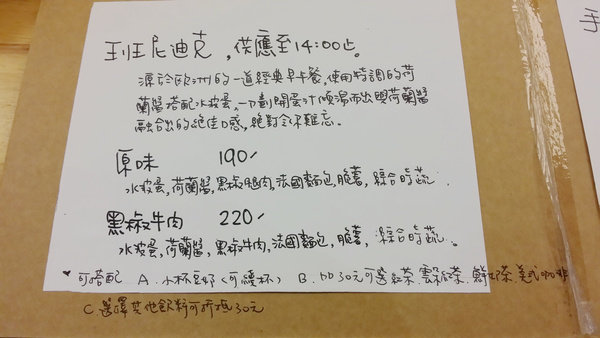 班尼迪克，供應至14:00止。
源於歐洲的一道經典早午餐，使用特調的荷
蘭醬搭配水波蛋，一刀劃開蛋汁傾瀉而出與荷蘭醬
融合出的絕佳口感，絕對令你難忘。
原味 190/
水波蛋，荷蘭醬，黑椒腿肉，法國麵包，脆薯，綜合時蔬．
黑椒牛肉 220/
水波蛋，荷蘭醬，黑椒牛肉，法國麵包，脆薯，綜合時蔬。
可搭配 A．小杯豆奶（可續杯） B．加30元可選紅茶．鮮奶茶．美式咖啡
C 選擇其他飲料可折抵30元
手